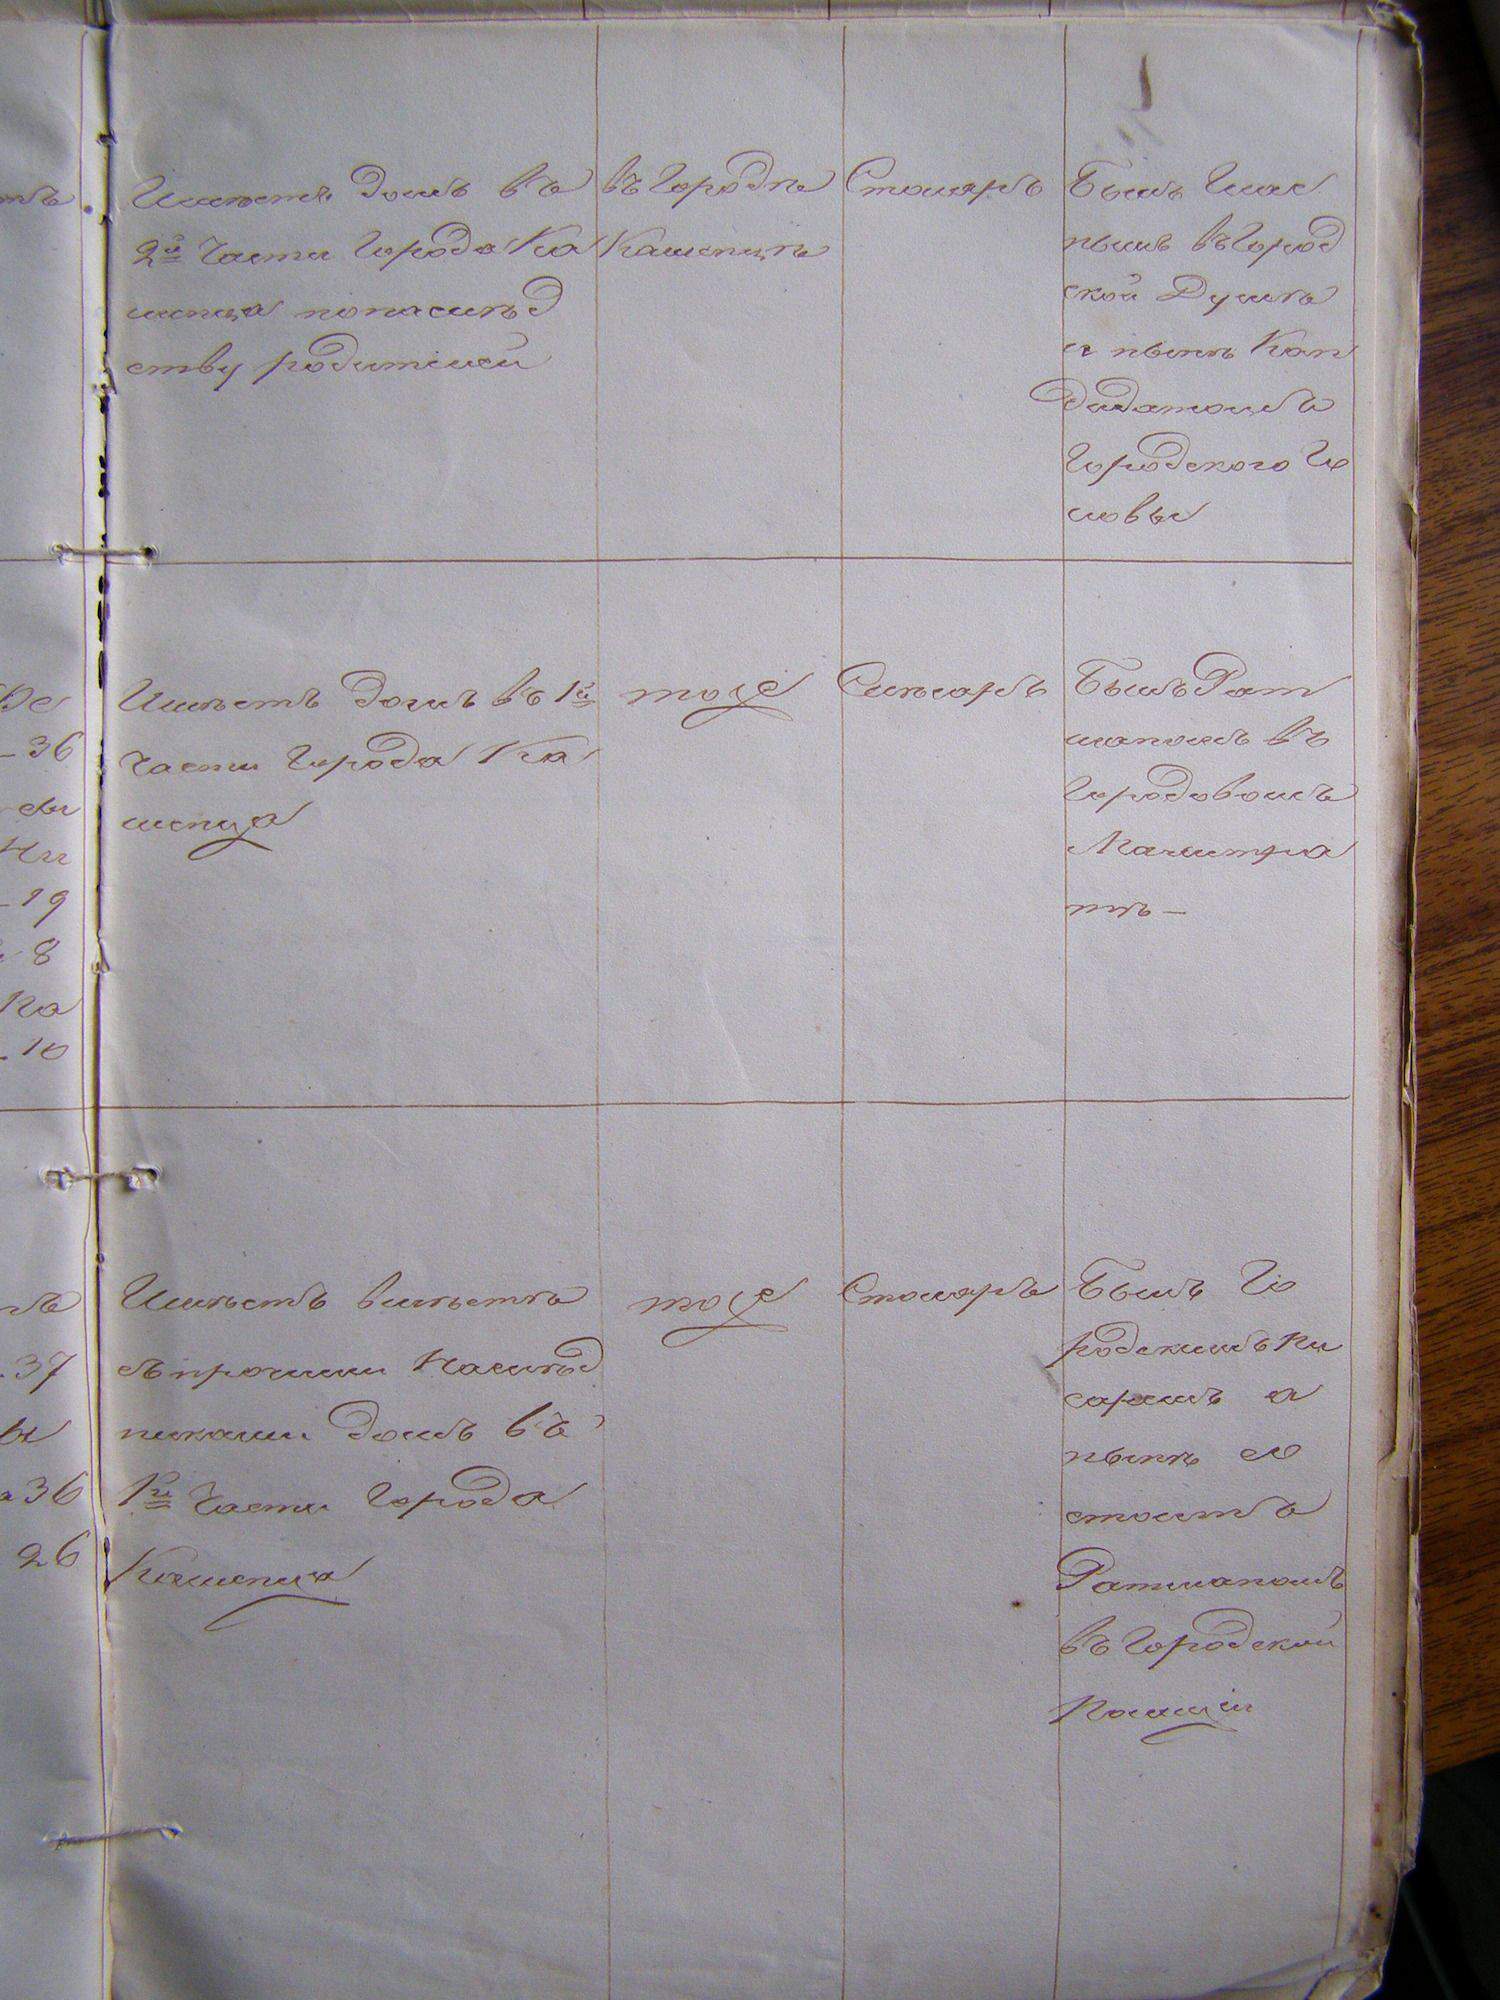 Имѣетъ домъ въ
2й части города Ка
менца понаслѣд
ству родителей
въ Городѣ
Каменцѣ
Столяръ
Былъ Глас
нымъ въ Город
ской Думѣ
и нынѣ Кан
дидатомъ
Городского Го
ловы
Имѣетъ домъ въ 1й
части Города Ка
менца
тоже
Слѣсаръ
Былъ Рат
маномъ въ
Городовомъ
Магистра
тѣ —
Имѣетъ вмѣстѣ
съ прочими Наслѣд
никами домъ въ
1й части Города
Каменца
тоже
Столяръ
Былъ Го
родскимъ Пи
саремъ а
нынѣ со
стоитъ
Ратманомъ
въ Городской
Полиціи
36
19
8
Ка
10
37
36
26